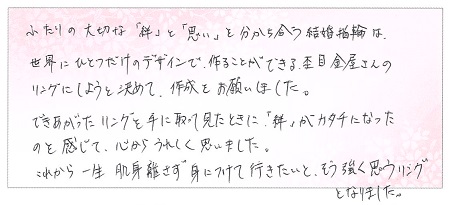 ふたりの大切な「絆」と「思い」と分かち合う結婚指輪は、
世界にひとつだけのデザインで、作ることができる、杢目金屋さんの
リングにしようと決めて、作成をお願いしました。
できあがったリングを手に取って見たときに、「絆」がカタチになった
のを感じて、心からうれしく思いました。
これから一生 肌身離さず身につけて行きたいと、そう強く思うリング
となりました。